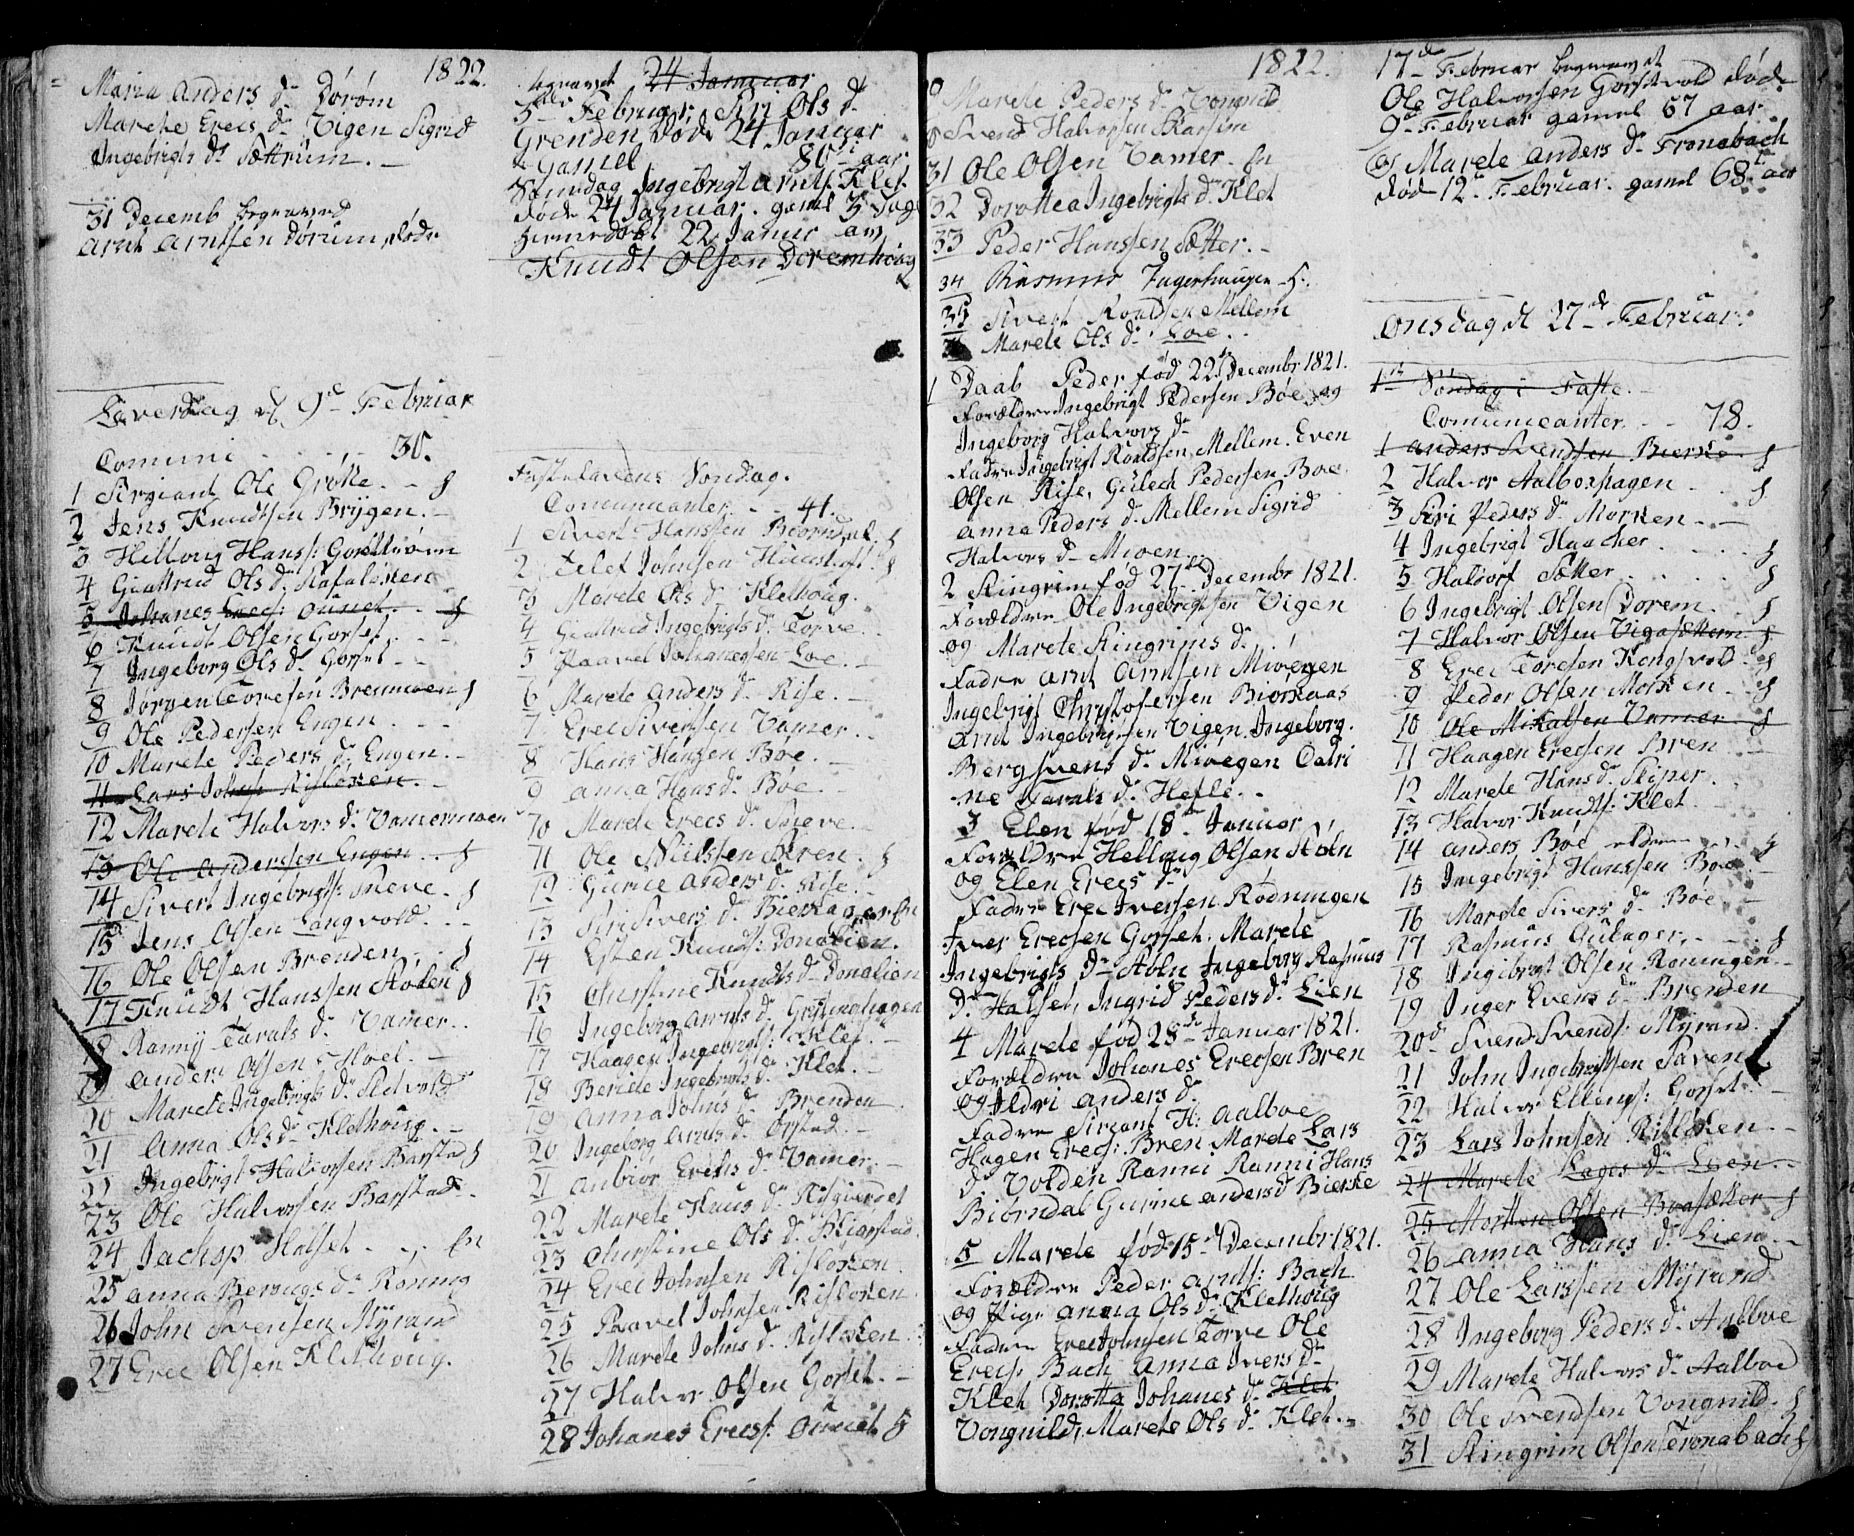 1822.
Maria Anders d. Dørøm
Marete Erecs d. Vigen Sigrid
Ingebrigts d. Sættrum. -
31 Decemb begraved
Arnt Arntsen Dorum, døde
Løverdag d 9d Februar
Comuni . . . . 30.
1 Sergiant Ole Grøtte. - f
2 Jens Knudtsen Brygen. -
3 Hellvug Hanss:
4 Giøttrud Ols d.
5 Johanes Erecs: Ouniet. - f
6 Knudt Olsen Gorset. . .
7 Ingeborg Ols d. Gorset - -
8 Jørgen Toresen Brenmoen f
9 Ole Pedersen Engen . . .
10 Marete Peders d. Engen. -
11 Lars Johns: Risløken. -
12 Marete Halvors d. Vamermoen
13 Ole Andersen Engen . . f
14 Sivert Ingebrigts: Sneve. - f
15 Jens Olsen Langvold. . .
16 Ole Olsen Brenden. . f
17 Knudt Hanssen Stølen f
18 Ranny Tarals d. Vamer. .
19 Anders Olsen Hoel. -
20 Marete Ingebrigts d. Selvold
21 Anna Ols d. Klethoug. -
22 Ingebrigt Halvorsen Barstad f
23 Ole Halvorsen Barstad.
24 Jachop Halset . . . fn
25 Anna Berungs d. Røning
26 John Svensen Myrand
27 Erec Olsen Klethoug.
begravet 24 Januar
5te Februar, Siri Ols d.
Grenden Døde 24 Januar
Gamel 80 aar
Søndag Ingebrigt Arnts. Klet
døde 24 Januar. gaml 3 Dage
hiemedøbt 22 Januar av
Knudt Olsen Doremhoug
Fastelavens Søndag.
Comunicanter - - 41.
1 Sivert Hanssen Biørndal. f
2 Estet Johnsen . f
3 Marete Ols d. Klethoug.
4 Giøttrud Ingebrigts d. Torve. .
5 Paavel Johanessen Loe. -
6 Marete Anders d. Rise. -
7 Erec Siversen Vamer. -
8 Hans Hansen Boe. -
9 Anna Hans d. Bøe.
10 Marete Erecs d. Sneve. -
11 Ole Nielssen Bren. f
12 Gurue Anders d. Rise. -
13 Siri Sivers d. Bierkager fn
14 Esten Knuds: Donalien.
15 Christine Knudts d. Donalien
16 Ingeborg Arnts d.
17 Haagen Ingebrigts: Klet. -
18 Berete Ingebrigts d. Klet. -
19 Anna Johns d. Brenden
20 Ingeborg Arnts d. Ørstad. -
21 Anbior Erecks d. Vamer. -
22 Marete Knus d. Risgierdet
23 Christine Ols d.
24 Erec Johnsen Risløken.
25 Paavel Johnsen Risløken
26 Marete Johns d. Risløken
27 Halvor Olsen Gorset. -
28 Johanes Erecs: Ouniet f
1822.
Marete Peders d. Vongnild
Svend Halvorsen
31 Ole Olsen Vamer. fn
32 Dorottea Ingebrigts d. Klet
33 Peder Hanssen Sætter. -
34 Rasmus Fagerhaugen f.
35 Sivert Roaldsen Mellem
Marete Ols d. Loe. .
1 Daab Peder fød 22. Decembr 1821.
Forældre Ingebrigt Pedersen Bøe og
Ingeborg Halvors d.
Fadre Ingebrigt Roaldsen Mellem. Even
Olsen Rise, Gulech Pedersen Boe
Anna Peders d. Mellem Sigrid
Halvors d. Mioen
2 Stingrim fød 27. Decembr 1821.
Forældre Ole Ingebrigtsen Vigen
og Marete Stingrims d. .
Fadre Arnt Arntsen Mivegen
Ingebrigt Christofersen Biørkaas
Arnt Ingebrigtsen Vigen Ingeborg.
Bergsvens d. Mivegen Catri
ne Tarals d. Hefle. -
3 Elen fød 18. Januar
Forældre Hellvug Olsen Støln
og Elen Erecs d.
Fadre Erec Iversen Rødningen
Iver Erecsen Gorset. Marete
Ingebrigts d. Støln Ingeborg Rasmus
d. Halset, Ingrid Peders d. Lien
4 Marete fød 28. Januar 1821.
Forældre Johanes Erecsen Bren
og Ildri Anders d.
Fadre Siriant H: Aalboe
Hagen Erecs: Bren Marete Lars
d. Volden Ranni Ranni Hans
Biørndal Gurine Anders d. Bierke
5 Marete fød 15. Decembr 1821.
Forældre Peder Arnts: Bach
og Pige Anna Ols d. Klethoug
Fadre Erec Johnsen Torve Ole
Erecs. Bach Anna Ivers d.
Klet Dorotta Johanes d. Klet
Vongnild, Marete Ols d. Klet. -
17d Februar begravet
Ole Halvorsen Gorsetvold Død
9d Februar gamel 67 aar
og Marete Anders d. Tronabach
død 12. Februar. gamel 68 aar
Onsdag d 27d Februar.
1te Søndag i Faste. -
Comunicanter - - 78.
1 Anders Svendsen Bierke - f
2 Halvor Aalboshagen - . f
3 Siri Peders d. Morken - . -
4 Ingebrigt Haacker . . . . f
5 Haldorf Sætter . . . . . f
6 Ingebrigt Olsen Dorem. . f
7 Halvor Olsen Vigasættem f
8 Erec Toresen Kongsvold - f
9 Peder Olsen Morken - . f
10 Ole Mikalsen Vamer - f
11 Haagen Erecsen Bren . -
12 Marete Hans d. Skiper.
13 Halvor Knudts: Klet
14 Anders Bøe eldre . . f
15 Ingebrigt Hanssen Boe. -
16 Marete Sivers d. Bøe. -
17 Rasmus Gulager. - . . f
18 Ingebrigt Olsen Roningen. -
19 Inger Evens d. Brenden
20 Svend Svends: Myrand.
21 John Ingebrigtsen Saven
22 Halvor Ellings: Gorset. -
23 Lars Johnsen Risløken. -
24 Marete Lages d. Lien. -
25 Morten Olsen Boasætter f
26 Anna Hans d. Lien. -
27 Ole Larssen Myrand
28 Ingeborg Peders d. Aalboe
29 Marete Halvors d. Aalboe
30 Ole Svendsen Vongnild. f
31 Stingrim Olsen Tronabach f